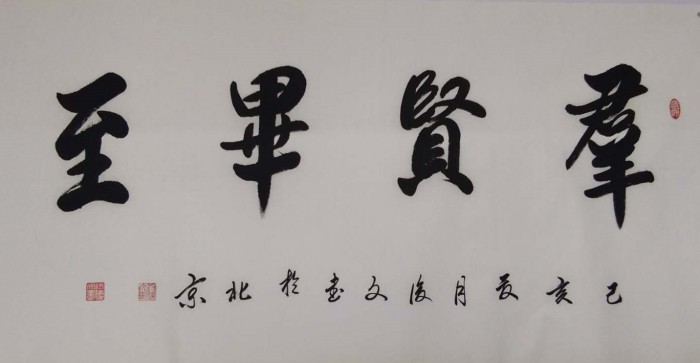 羣賢畢至
己亥夏月文書於北京